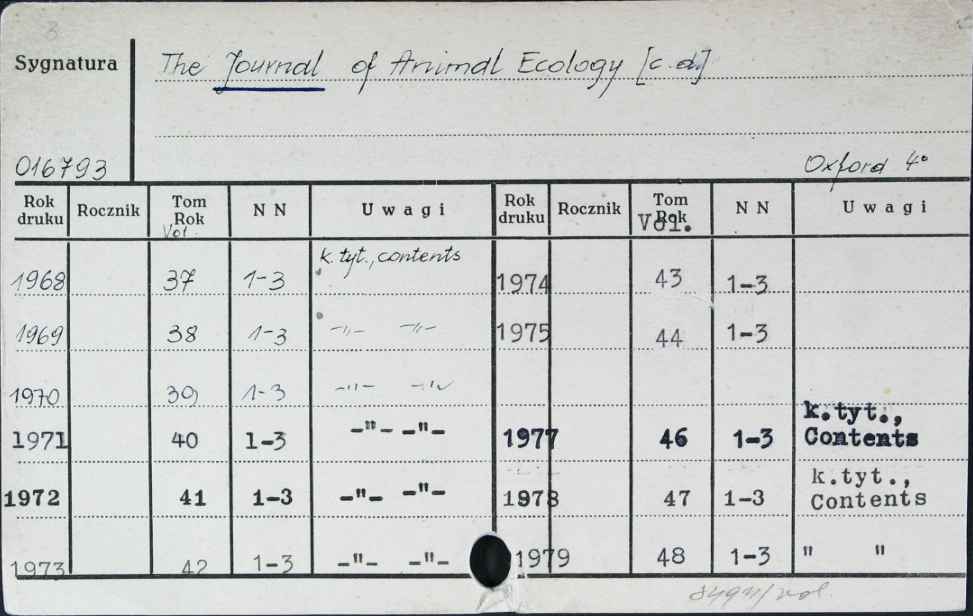 3
Sygnatura The Journal of Animal Ecology [c.d.]
016793 Oxford 4°
Rok druku Rocznik Tom Rok Vol. NN Uwagi Rok druku Rocznik Tom Rok Vol. NN Uwagi
1968 37 1-3 k. tyt., contents 1974 43 1-3
1969 38 1-3 -"- -"- 1975 44 1-3
1970 39 1-3 -"- -"-
1971 40 1-3 -"- -"- 1977 46 1-3 k.tyt., Contents
1972 41 1-3 -"- -"- 1978 47 1-3 k.tyt., Contents
1973 42 1-3 -"- -"- 1979 48 1-3 " "